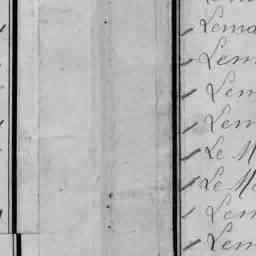 Lema
Lem
Lem
Lem
Le M
Le Mo
Lem
Lem